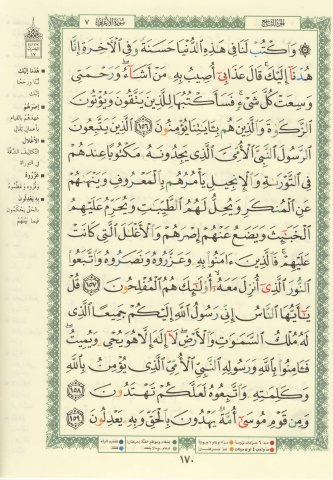 الجزء التاسع
سورة الأعراف ٧
وَاكْتُبْ لَنَا فِي هَذِهِ الدُّنْيَا حَسَنَةً وَفِي الْآخِرَةِ إِنَّا
هُدْنَا إِلَيْكَ قَالَ عَذَابِي أُصِيبُ بِهِ مَنْ أَشَاءُ وَرَحْمَتِي
وَسِعَتْ كُلَّ شَيْءٍ فَسَأَكْتُبُهَا لِلَّذِينَ يَتَّقُونَ وَيُؤْتُونَ
الزَّكَوٰةَ وَالَّذِينَ هُم بِـَٔايَٰتِنَا يُؤْمِنُونَ ١٥٦ الَّذِينَ يَتَّبِعُونَ
الرَّسُولَ النَّبِيَّ الْأُمِّيَّ الَّذِي يَجِدُونَهُ مَكْتُوبًا عِندَهُمْ
فِي التَّوْرَىٰةِ وَالْإِنجِيلِ يَأْمُرُهُم بِالْمَعْرُوفِ وَيَنْهَىٰهُمْ
عَنِ الْمُنكَرِ وَيُحِلُّ لَهُمُ الطَّيِّبَٰتِ وَيُحَرِّمُ عَلَيْهِمُ
الْخَبَٰٓئِثَ وَيَضَعُ عَنْهُمْ إِصْرَهُمْ وَالْأَغْلَٰلَ الَّتِي كَانَتْ
عَلَيْهِمْ فَالَّذِينَ ءَامَنُوا بِهِ وَعَزَّرُوهُ وَنَصَرُوهُ وَاتَّبَعُوا
النُّورَ الَّذِي أُنزِلَ مَعَهُ أُولَٰٓئِكَ هُمُ الْمُفْلِحُونَ ١٥٧ قُلْ
يَٰٓأَيُّهَا النَّاسُ إِنِّي رَسُولُ اللَّهِ إِلَيْكُمْ جَمِيعًا الَّذِي
لَهُ مُلْكُ السَّمَٰوَٰتِ وَالْأَرْضِ لَا إِلَٰهَ إِلَّا هُوَ يُحْيِي وَيُمِيتُ
فَـَٔامِنُوا بِاللَّهِ وَرَسُولِهِ النَّبِيِّ الْأُمِّيِّ الَّذِي يُؤْمِنُ بِاللَّهِ
وَكَلِمَٰتِهِ وَاتَّبِعُوهُ لَعَلَّكُمْ تَهْتَدُونَ ١٥٨
وَمِن قَوْمِ مُوسَىٰٓ أُمَّةٌ يَهْدُونَ بِالْحَقِّ وَبِهِ يَعْدِلُونَ ١٥٩
١٧٠
هُدْنَا إِلَيْكَ
إِصْرَهُمْ
الأَغْلَالَ
في التوراة
عَزَّرُوهُ
بِهِ يَعْدِلُونَ